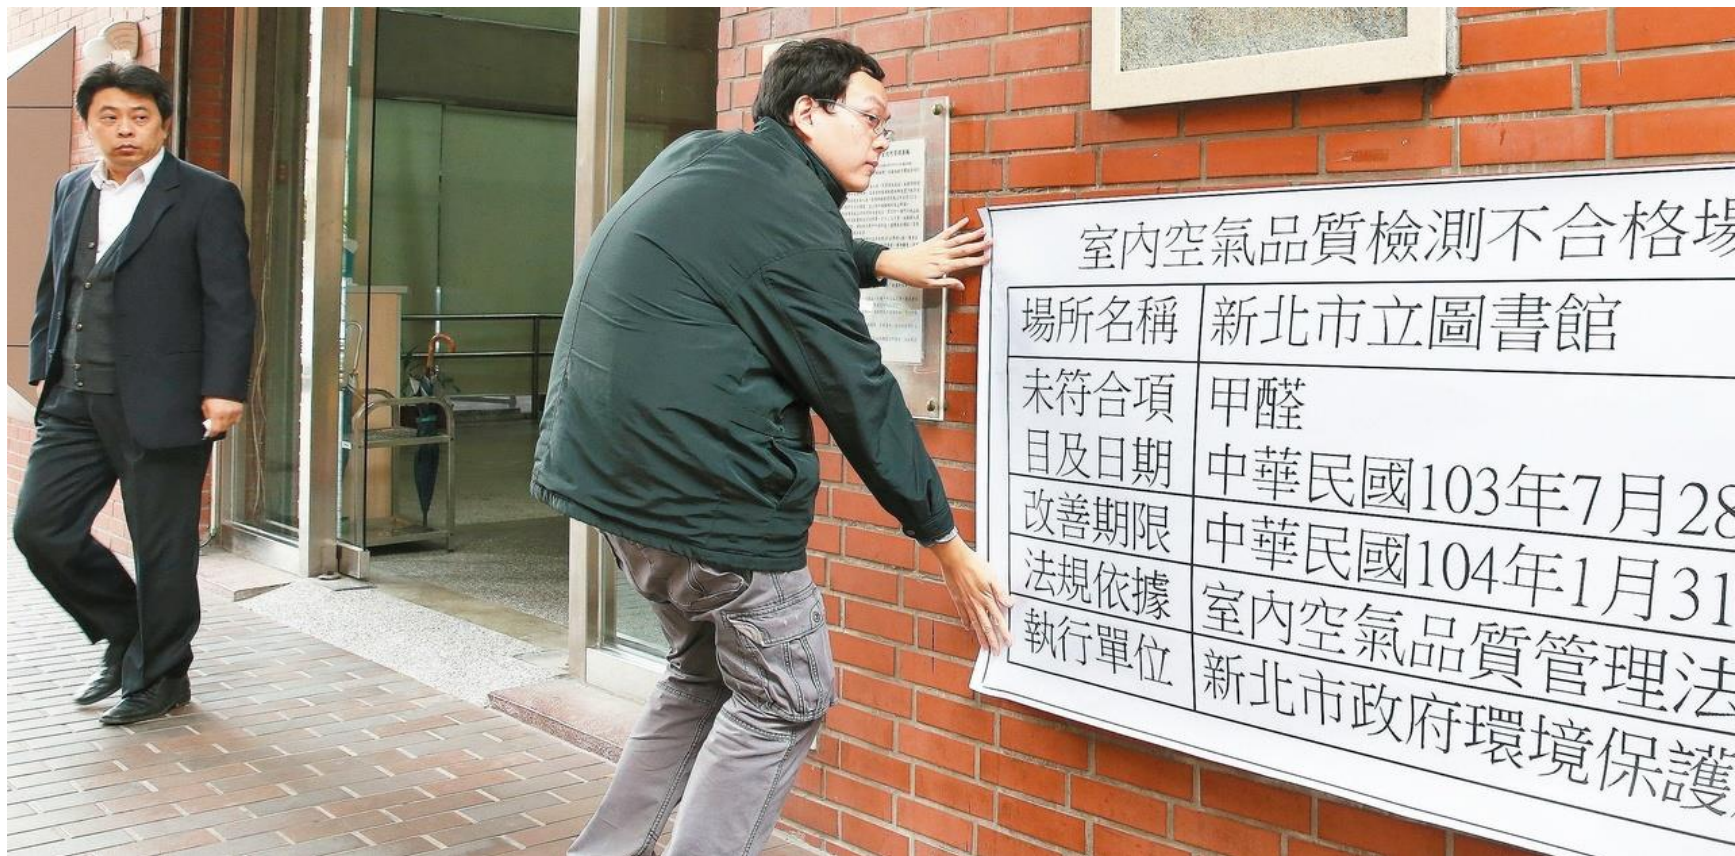 室內空氣品質檢測不合格場
場所名稱 新北市立圖書館
未符合項目及日期 甲醛
中華民國103年7月28
改善期限 中華民國104年1月31
法規依據 室內空氣品質管理法
執行單位 新北市政府環境保護